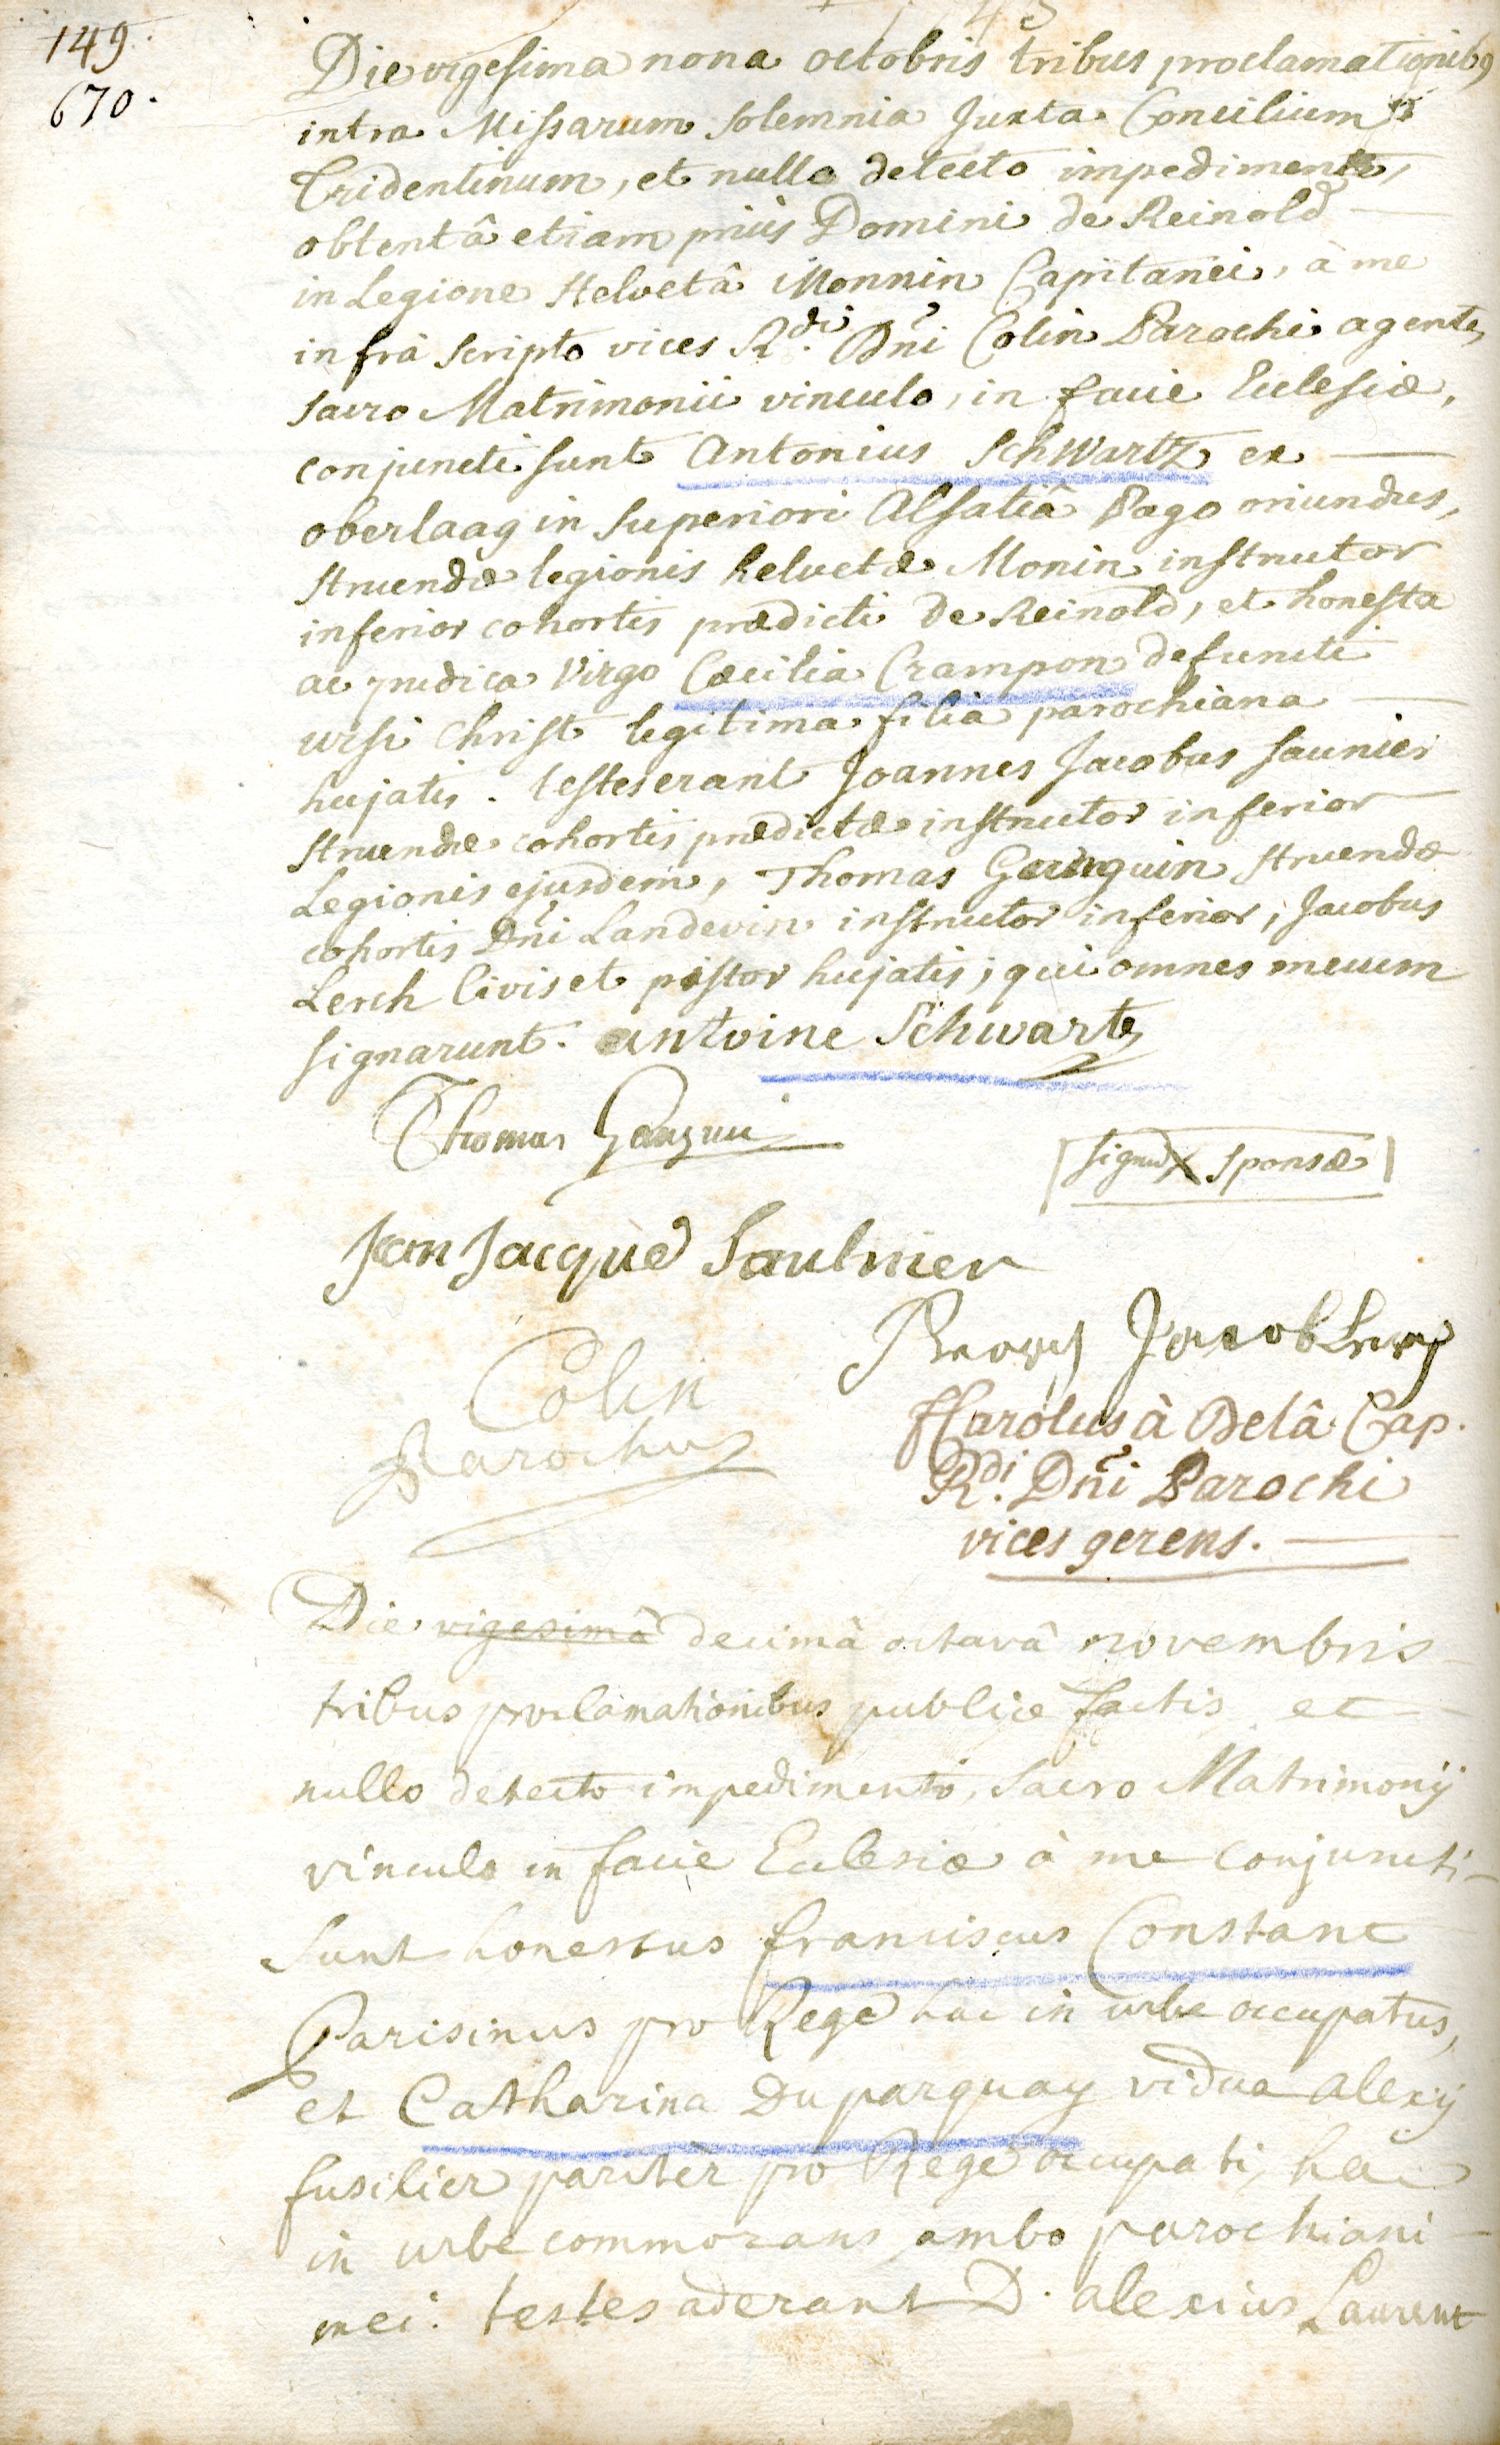 149.
670.
Die vigesima nona octobris tribus proclamationibꝰ
intra Missarum solemnia Juxta Concilium
Tridentinum, et nullo detecto impedimento,
obtentâ etiam priùs Domini de Reinold
in Legione Helvetâ Monnin Capitanei, à me
infrà scripto vices R.di Dñi Colin Parochi agente,
sacro Matrimonii vinculo, in facie Ecclesiæ,
conjuncti sunt Antonius Schwartz ex
oberlaag in superiori Alsatiâ Pago oriundus,
struendæ legionis helvetæ Monin instructor
inferior cohortis prædicti de Reinold, et honesta
ac pudica Virgo Cæcilia Crampon defuncti
ursi Christ legitima filia parochiana
hujatis. testes erant Joannes Jacobus Saunier
struendæ cohortis prædictæ instructor inferior
Legionis ejusdem, Thomas Guinguin struendæ
cohortis Dñi Landevin instructor inferior, Jacobus
Lerch Civis et pistor hujatis; qui omnes mecum
signarunt. antoine Schwartz
Thomas Ganguin
signũ X sponsæ
Jean Jacque Saulnier
Jacob
Colin
Parochus
Carolus à Delâ Cap.
R.di Dñi Parochi
vices gerens.
Die vigesimâ decimâ octavâ novembris
tribus proclamationibus publice factis et
nullo detecto impedimento, Sacro Matrimonÿ
vinculo in facie Eclesiæ à me conjuncti
Sunt honestus franciscus Constant
Parisinus pro Rege hac in urbe occupatus,
et Catharina Duparquay vidua alexÿ
fusilier pariter pro Rege occupati, hac
in urbe commorans ambo parochiani
mei. testes aderant D. alexius Laurent